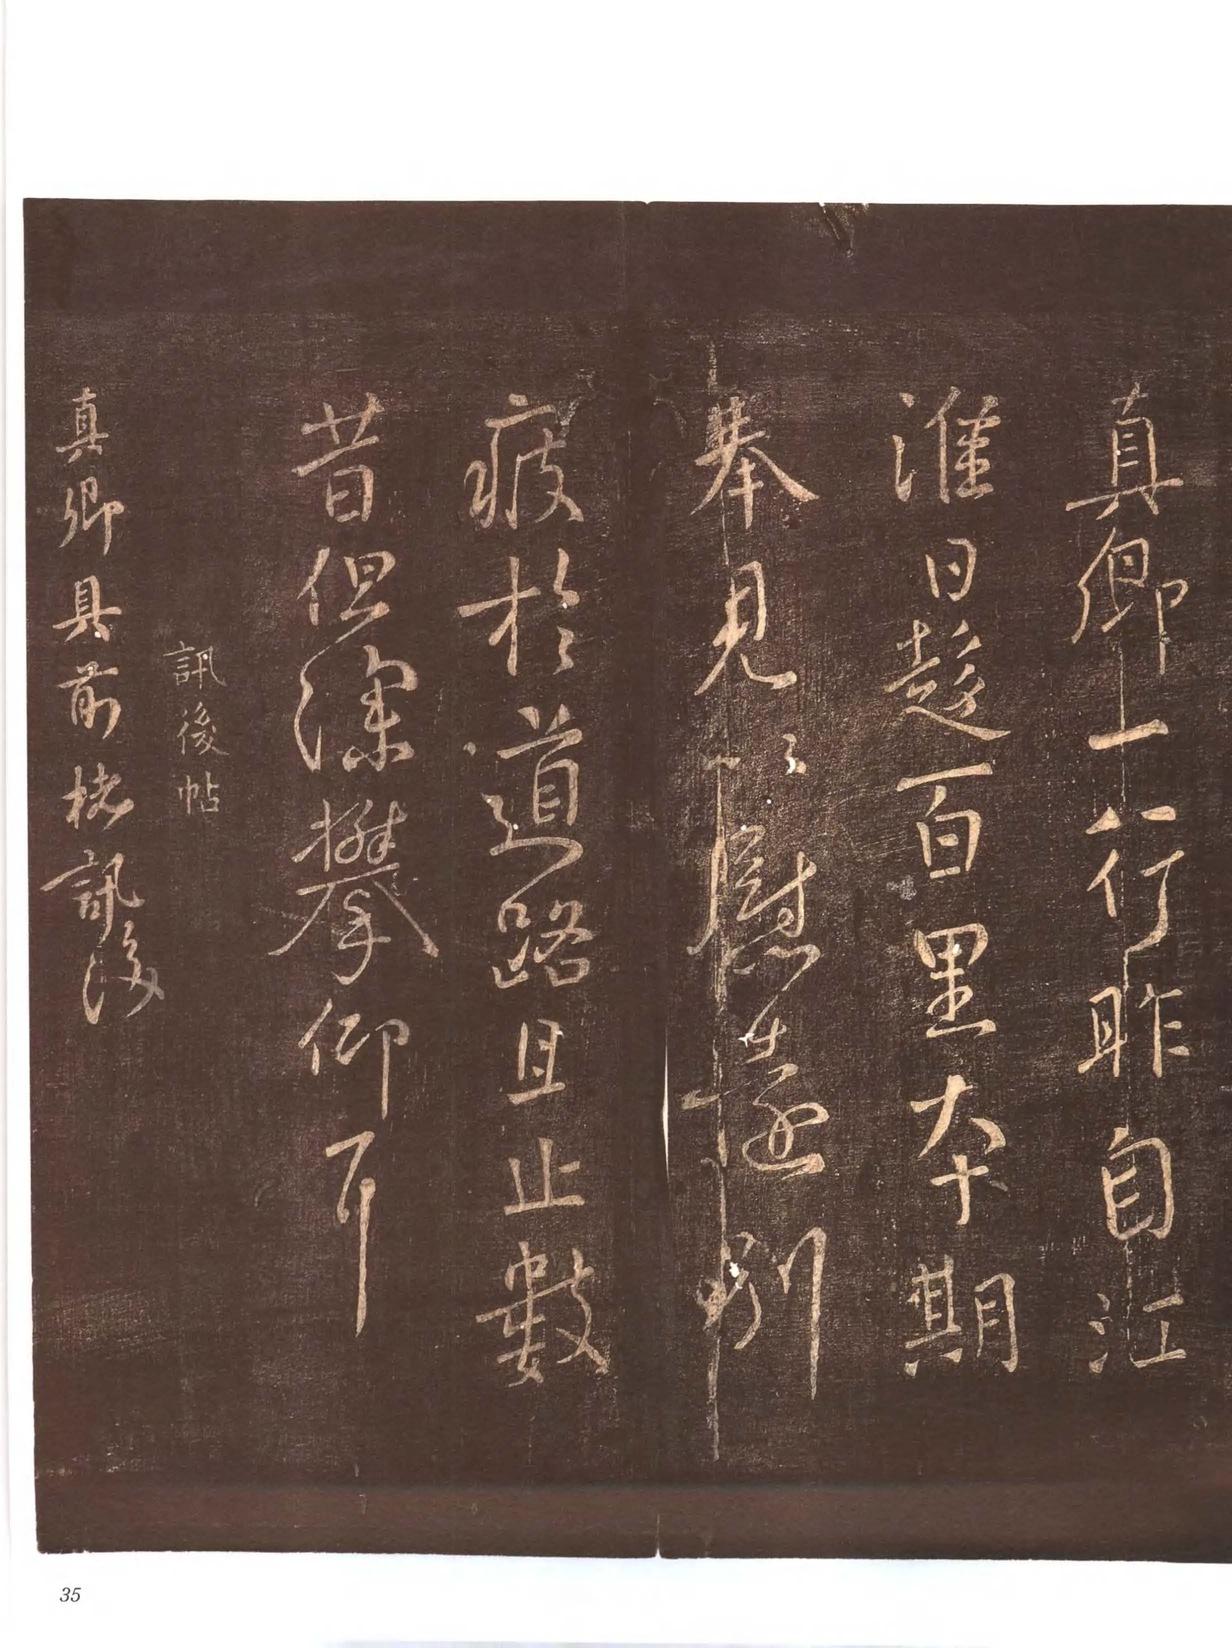 真卿一行昨自江
淮日趍百里本期
奉見〻慰遠別
疲於道路且止數
昔但深攀仰耳
訊後帖
真卿具前楮訊後
35